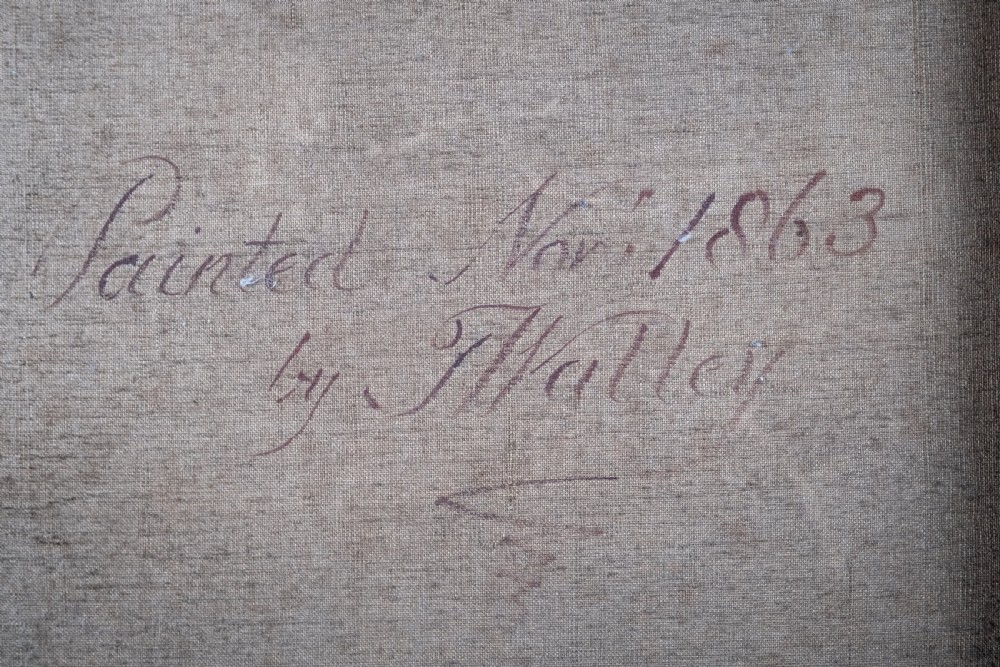 Painted Nov: 1863
by J Walley